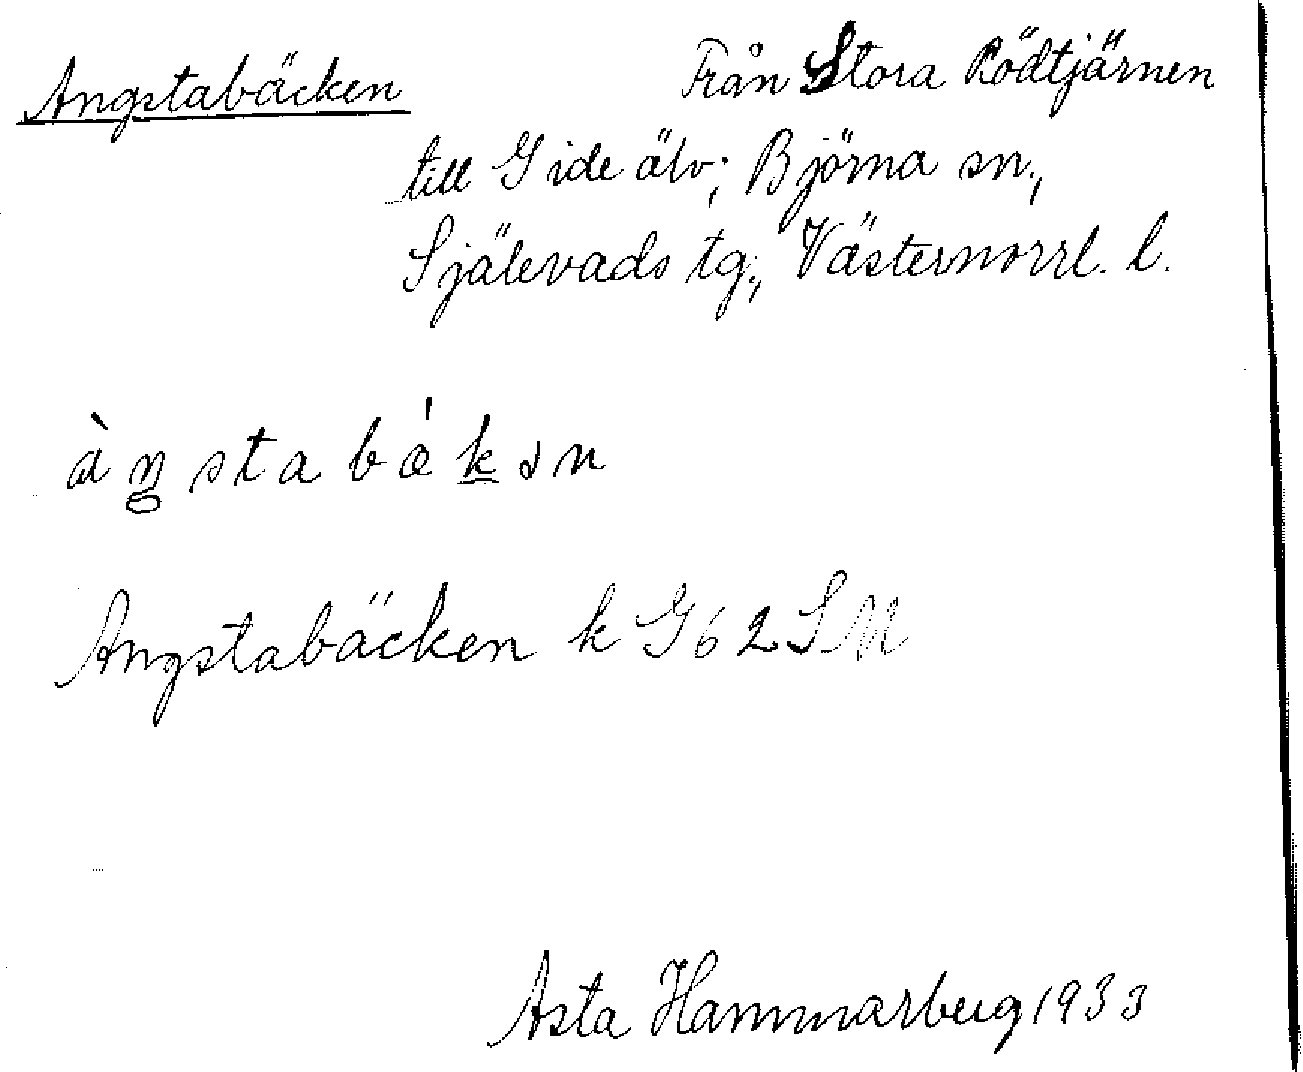 Angstabäcken Från Stora Rödtjärnen
till Gide älv; Björna sn.,
Själevads tg., Västernorrl. l.
àŋstabǽkən
Angstabäcken k G62SM
Asta Hammarberg 1933